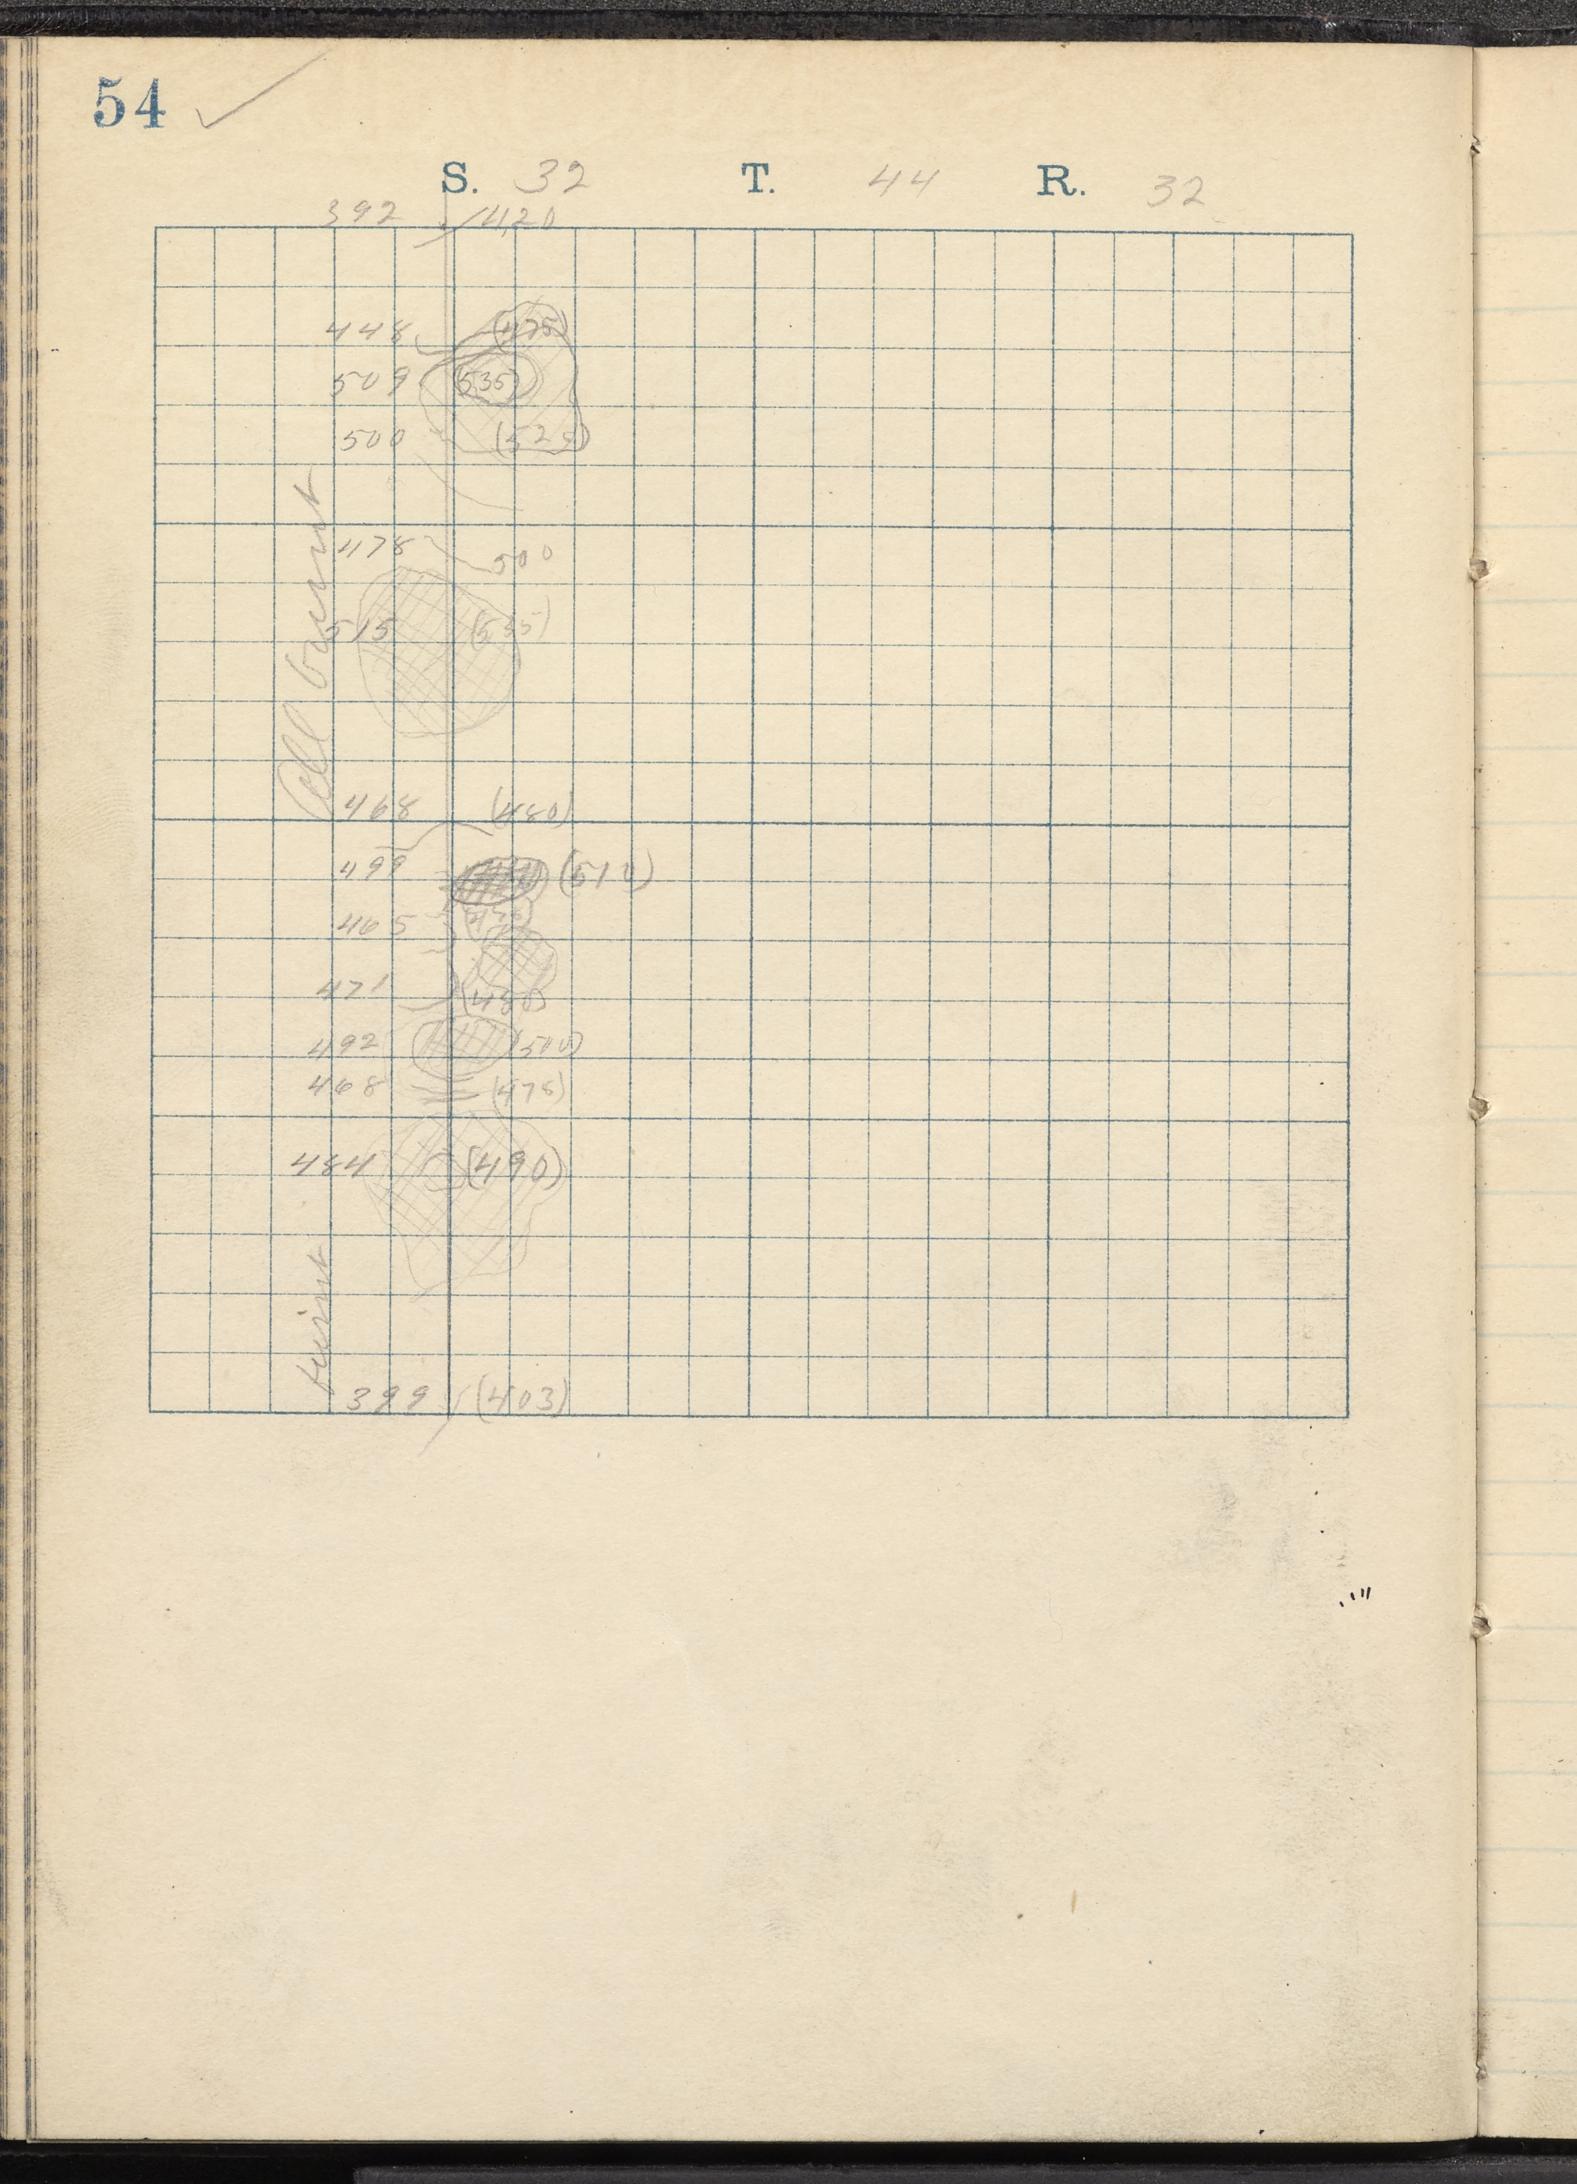 54 ✓
S. 32 T. 44 R. 32
392 420
448 (475)
509 (535)
500 (525)
All burnt
478 500
515 (535)
468 (480)
499 (510)
465 475
471 (480)
492 (500)
468 (475)
484 (490)
burnt
399 (403)